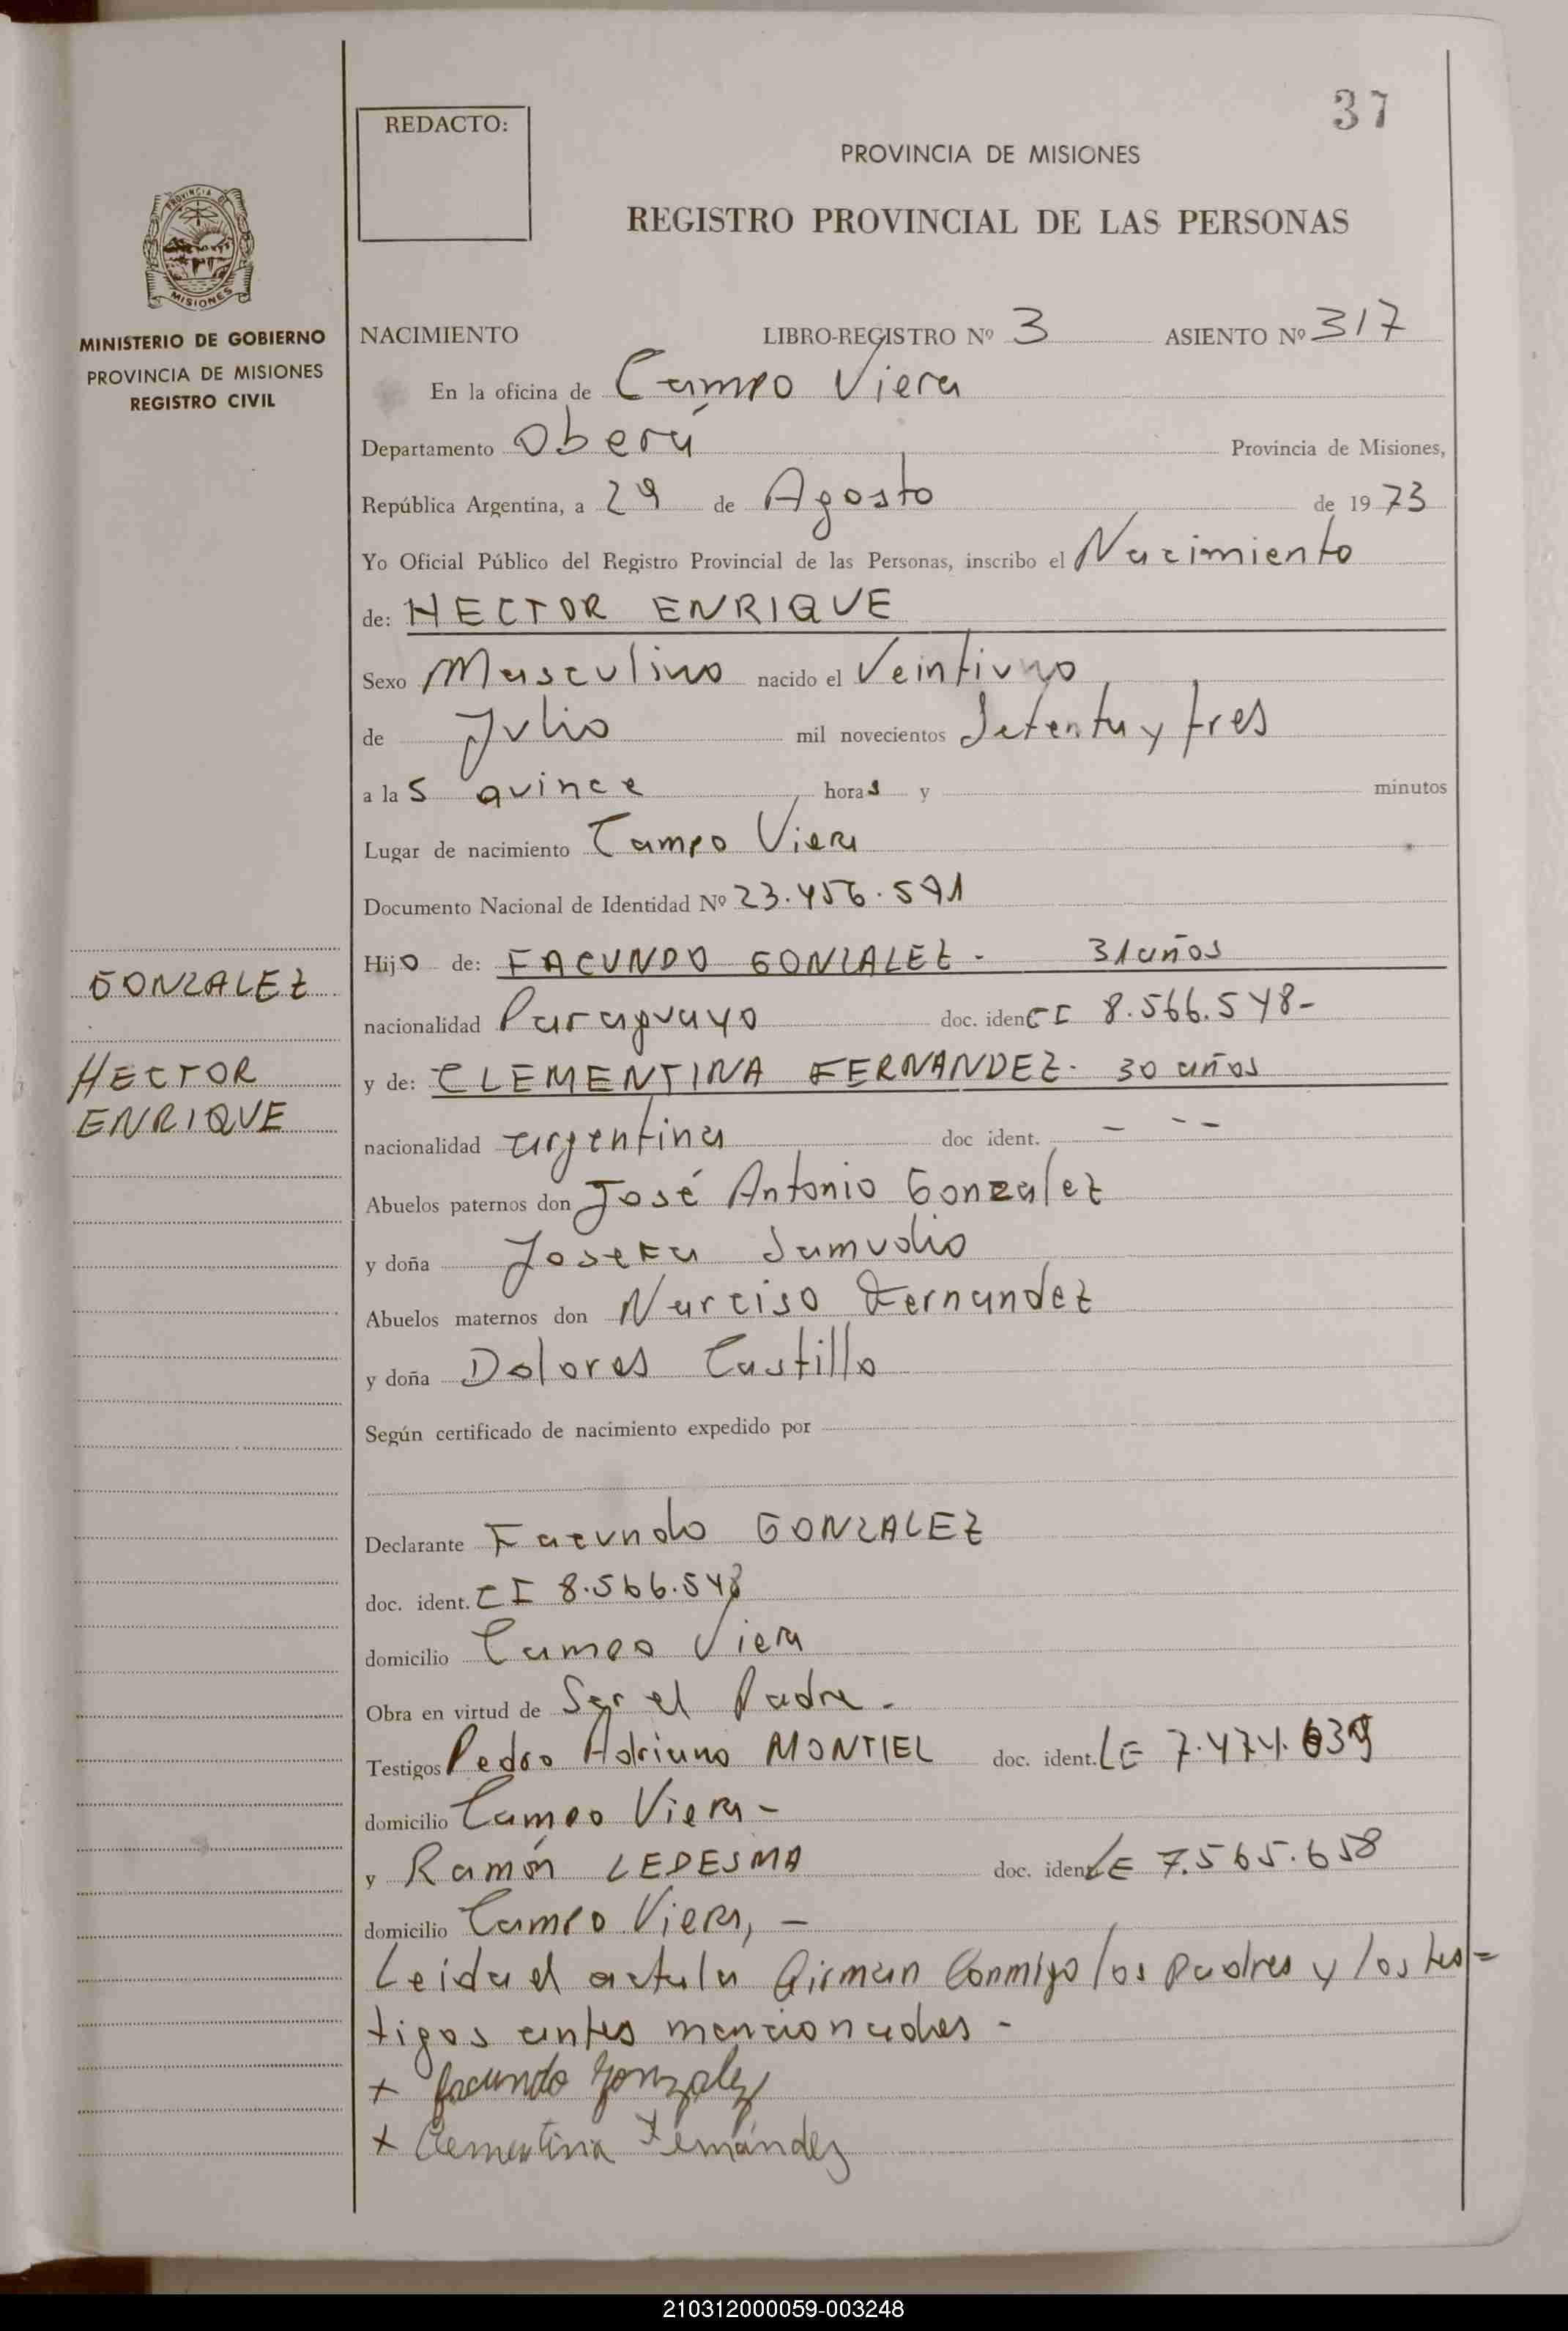 37
REDACTO:
PROVINCIA DE MISIONES
REGISTRO PROVINCIAL DE LAS PERSONAS
PROVINCIA DE
MISIONES
MINISTERIO DE GOBIERNO
PROVINCIA DE MISIONES
REGISTRO CIVIL
NACIMIENTO LIBRO-REGISTRO Nº 3 ASIENTO Nº 317
En la oficina de Campo Viera
Departamento Oberá Provincia de Misiones,
República Argentina, a 29 de Agosto de 1973
Yo Oficial Público del Registro Provincial de las Personas, inscribo el Nacimiento
de: HECTOR ENRIQUE
Sexo Masculino nacido el Veintiuno
de Julio mil novecientos Setenta y tres
a las quince horas y minutos
Lugar de nacimiento Campo Viera
Documento Nacional de Identidad Nº 23.456.591
Hijo de: FACUNDO GONZALEZ - 31 años
nacionalidad Paraguayo doc. iden CI 8.566.548-
y de: CLEMENTINA FERNANDEZ. 30 años
nacionalidad argentina doc ident. - - -
Abuelos paternos don José Antonio Gonzalez
y doña Josefa Samudio
Abuelos maternos don Narciso Fernandez
y doña Dolores Castillo
Según certificado de nacimiento expedido por
Declarante Facundo GONZALEZ
doc. ident. CI 8.566.548
domicilio Campo Viera
Obra en virtud de Ser el Padre -
Testigos Pedro Adriano MONTIEL doc. ident. LE 7.474.639
domicilio Campo Viera -
y Ramón LEDESMA doc. iden LE 7.565.658
domicilio Campo Viera, -
Leida el acta la firman Conmigo los padres y los tes=
tigos antes mencionados -
+ Facundo Gonzalez
+ Clementina Fernández
GONZALEZ
HECTOR
ENRIQUE
210312000059-003248